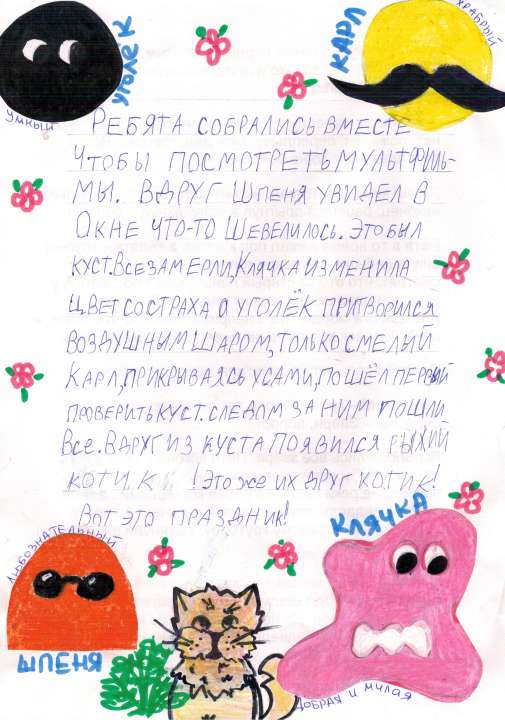 УГОЛЁК
УМНЫЙ
КАРЛ
ХРАБРЫЙ
РЕБЯТА СОБРАЛИСЬ ВМЕСТЕ
ЧТОБЫ ПОСМОТРЕТЬ МУЛЬТФИЛЬ-
МЫ. ВДРУГ ШПЕНЯ УВИДЕЛ В
ОКНЕ ЧТО-ТО ШЕВЕЛИЛОСЬ. ЭТО БЫЛ
КУСТ. ВСЕ ЗАМЕРЛИ, КЛЯЧКА ИЗМЕНИЛА
ЦВЕТ СО СТРАХА, А УГОЛЁК ПРИТВОРИЛСЯ
ВОЗДУШНЫМ ШАРОМ, ТОЛЬКО СМЕЛЫЙ
КАРЛ, ПРИКРЫВАЯСЬ УСАМИ, ПОШЁЛ ПЕРВЫЙ
ПРОВЕРИТЬ КУСТ. СЛЕДОМ ЗА НИМ ПОШЛИ
ВСЕ. ВДРУГ ИЗ КУСТА ПОЯВИЛСЯ РЫЖИЙ
КОТИК ! ЭТО ЖЕ ИХ ДРУГ КОТИК!
ВОТ ЭТО ПРАЗДНИК!
ЛЮБОЗНАТЕЛЬНЫЙ
ШПЕНЯ
КЛЯЧКА
ДОБРАЯ И МИЛАЯ